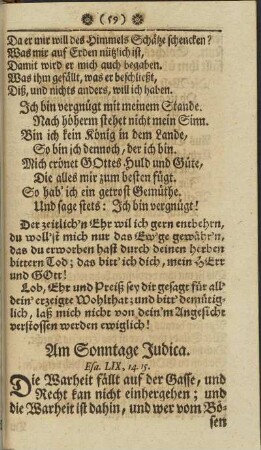 (59)
Da er mir will des Himmels Schätze schencken?
Was mir auf Erden nützlich ist,
Damit wird er mich auch begaben.
Was ihm gefällt, was er beschließt,
Diß, und nichts anders, will ich haben.
Ich bin vergnügt mit meinem Stande.
Nach höherm stehet nicht mein Sinn.
Bin ich kein König in dem Lande,
So bin ich dennoch, der ich bin.
Mich crönet GOttes Huld und Güte,
Die alles mir zum besten fügt.
So hab' ich ein getrost Gemüthe.
Und sage stets: Ich bin vergnügt!
Der zeitlich'n Ehr wil ich gern entbehrn,
du woll'st mich nur das Ew'ge gewähr'n,
das du erworben hast durch deinen herben
bittern Tod; das bitt' ich dich, mein HErr
und GOtt!
Lob, Ehr und Preiß sey dir gesagt für all'
dein' erzeigte Wohlthat; und bitt' demütig-
lich, laß mich nicht von dein'm Angesicht
verstossen werden ewiglich!
Am Sonntage Judica.
Esa. LIX, 14. 15.
Die Warheit fällt auf der Gasse, und
Recht kan nicht einhergehen; und
die Warheit ist dahin, und wer vom Bö-
sen